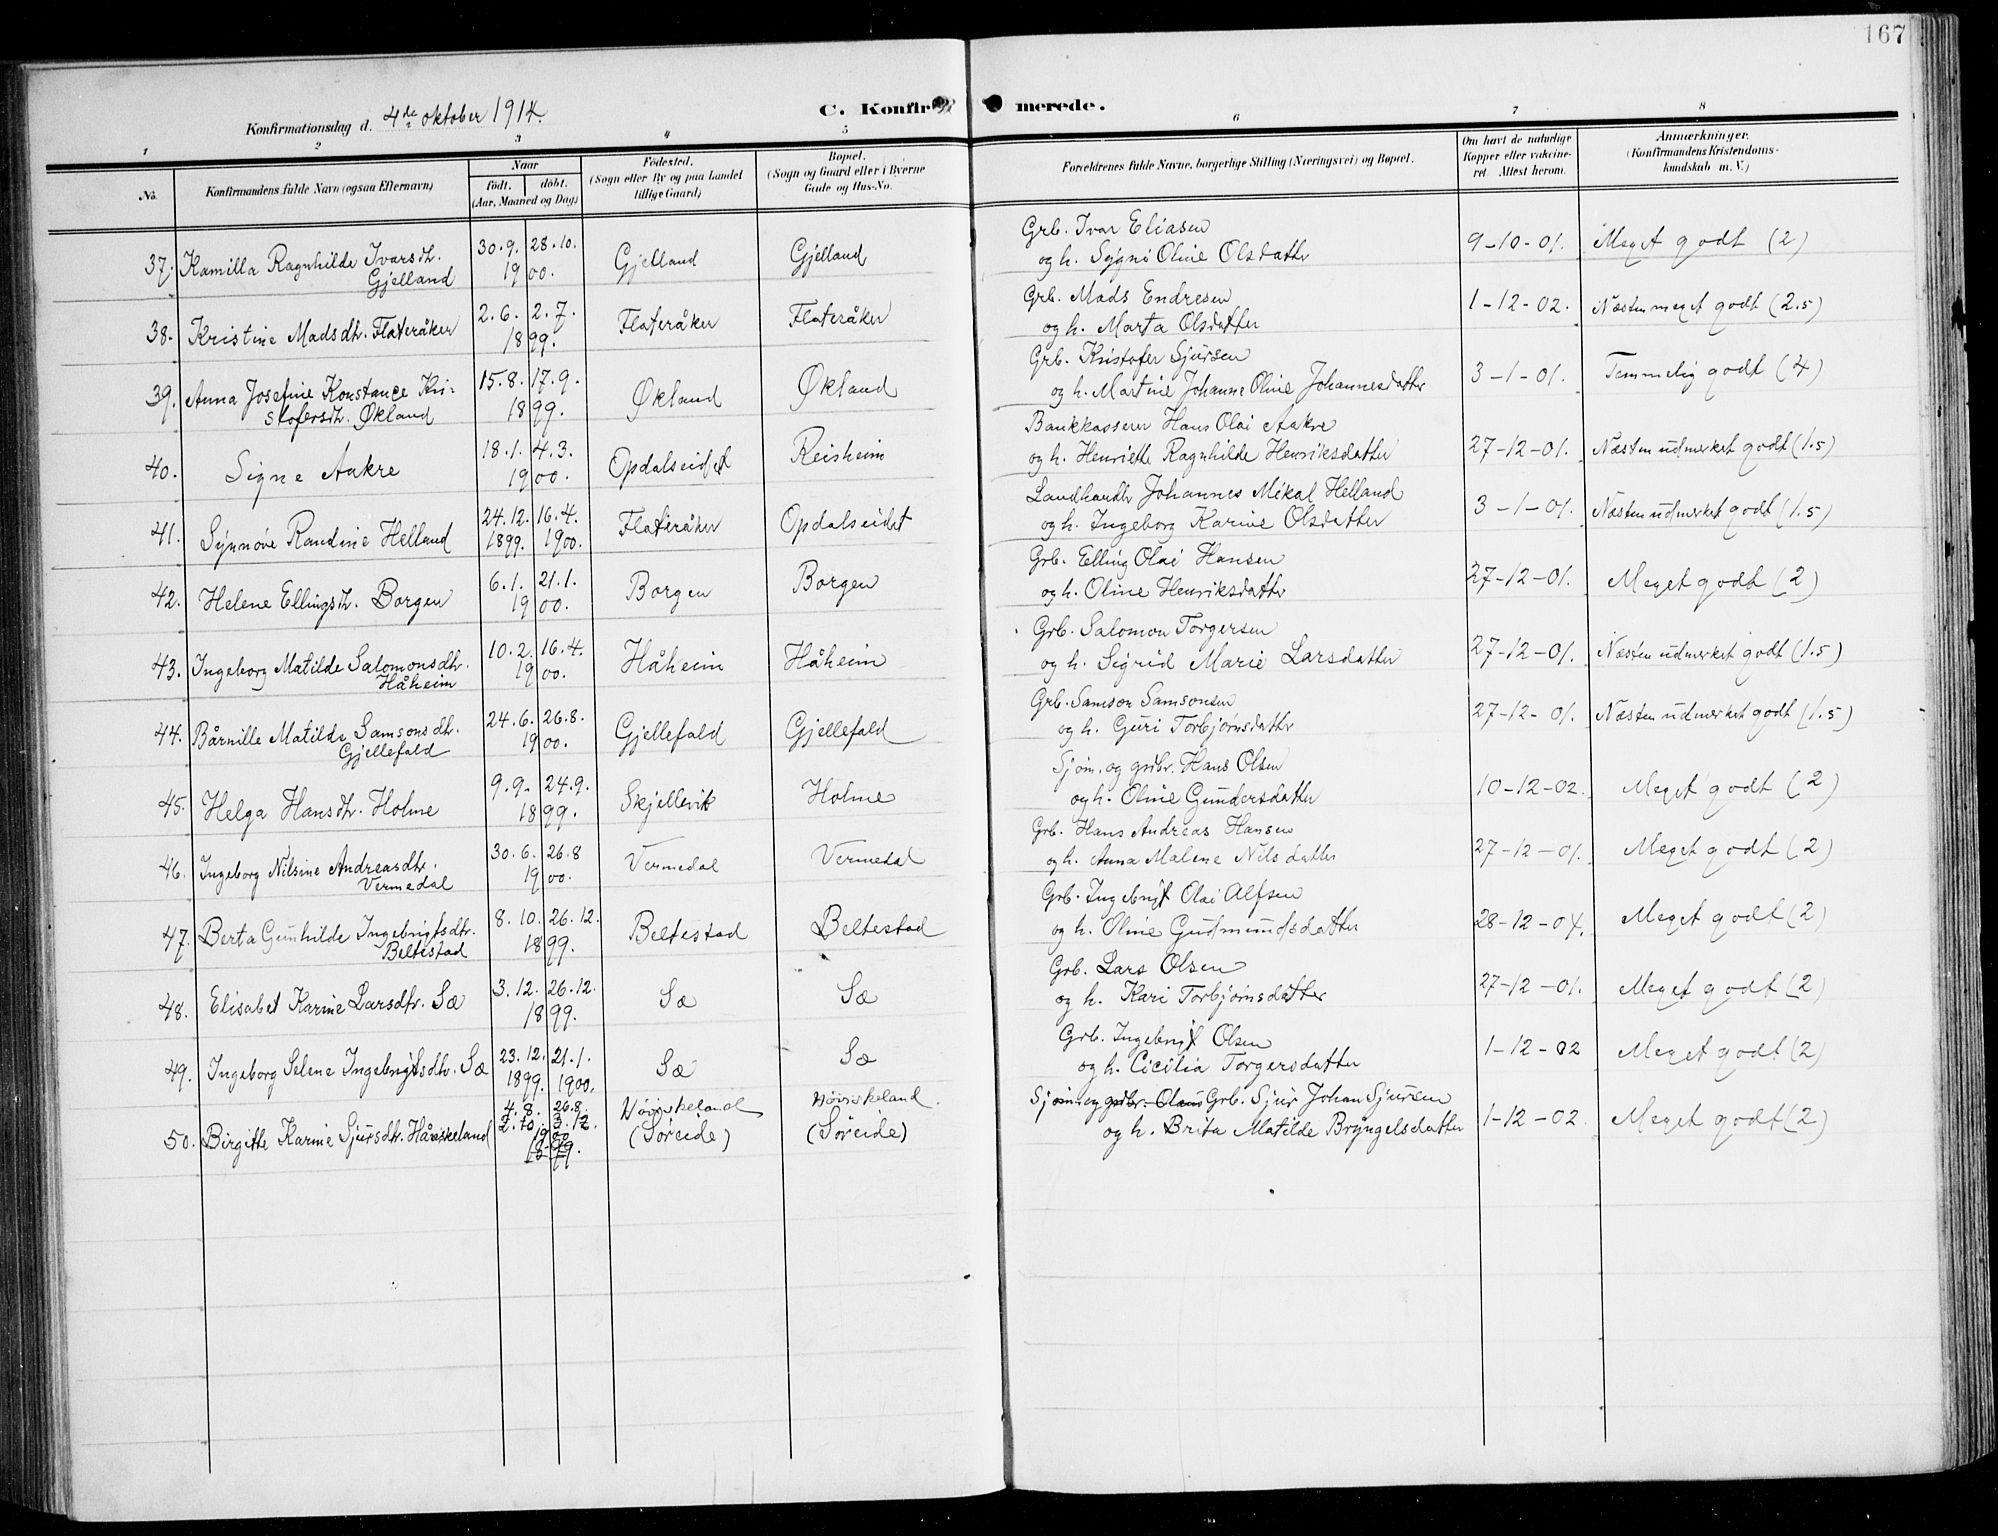 167
Konfirmationsdag d. 4de oktober 1914.
C. Konfirmerede.
1 2 3 4 5 6 7 8
No. Konfirmandens fulde Navn (ogsaa Efternavn) Naar født. døbt. (Aar, Maaned og Dag) Fødested. (Sogn eller By og paa Landet tillige Gaard) Bopæl. (Sogn og Gaard eller i Byerne Gade og Hus-No. Forældrenes fulde Navne, borgerlige Stilling (Næringsvei) og Bopæl. Om havt de naturlige Kopper eller vakcineret. Attest herom. Anmærkninger. (Konfirmandens Kristendomskundskab m. V.)
37. Kamilla Ragnhilde Ivarsdtr. Gjelland 30.9. 28.10. 1900. Gjelland Gjelland Grb. Ivar Eliasen
og h. Sygni Oline Olsdatter 9-10-01. Meget godt (2)
38. Kristine Madsdtr. Flateråker 2.6. 2.7. 1899. Flateråker Flateråker Grb. Mads Endresen
og h. Marta Olsdatter 1-12-02. Næsten meget godt (2.5)
39. Anna Josefine Konstance Kristofersdtr. Økland 15.8. 17.9. 1899. Økland Økland Grb. Kristofer Sjursen
og h. Martine Johanne Oline Johannesdatter 3-1-01. Temmelig godt (4)
40. Signe Aakre 18.1. 4.3. 1900. Opdalseidet Reisheim Bankkasserer Hans Olai Aakre
og h. Henriette Ragnhilde Henriksdatter 27-12-01. Næsten udmerket godt (1.5)
41. Synnøve Randine Helland 24.12. 1899. 16.4. 1900. Flateråker Opdalseidet Landhandlr Johannes Mikal Helland
og h. Ingeborg Karine Olsdatter 3-1-01. Næsten udmerket godt (1.5)
42. Helene Ellingsdtr. Borgen 6.1. 21.1. 1900. Borgen Borgen Grb. Elling Olai Hansen
og h. Oline Henriksdatter 27-12-01. Meget godt (2)
43. Ingeborg Matilde Salomonsdtr. Håheim 10.2. 16.4. 1900. Håheim Håheim Grb. Salomon Torgersen
og h. Sigrid Marie Larsdatter 27-12-01. Næsten udmerket godt (1.5)
44. Bårnille Matilde Samsonsdtr. Gjellefald 24.6. 26.8. 1900. Gjellefald Gjellefald Grb. Samson Samsonsen
og h. Guri Torbjørnsdatter 27-12-01. Næsten udmerket godt (1.5)
45. Helga Hansdtr. Holme 9.9. 24.9. 1899. Skjellevik Holme Sjøm. og grdbr. Hans Olsen
og h. Oline Gundersdatter 10-12-02. Meget godt (2)
46. Ingeborg Nilsine Andreasdtr. Vermedal 30.6. 26.8 1900. Vermedal Vermedal Grb. Hans Andreas Hansen
og h. Anna Malene Nilsdatter 27-12-01. Meget godt (2)
47. Berta Gunhilde Ingebrigtsdtr. Beltestad 8.10. 26.12. 1899. Beltestad Beltestad Grb. Ingebrigt Olai Alfsen
og h. Oline Gudmundsdatter 28-12-04. Meget godt (2)
48. Elisabet Karine Larsdtr. Sæ 3.12. 26.12. 1899. Sæ Sæ Grb. Lars Olsen
og h. Kari Torbjørnsdatter 27-12-01. Meget godt (2)
49. Ingeborg Selene Ingebrigtsdtr. Sæ 23.12. 1899. 21.1. 1900. Sæ Sæ Grb. Ingebrigt Olsen
og h. Cicilia Torgersdatter 1-12-02 Meget godt (2)
50. Birgitte Karine Sjursdtr. Håviskeland 4.8. 26.8. 2.10. 3.12. 1900 1899. Høviskeland (Søreide) Høviskeland. (Søreide) Sjøm. og grdbr. Olaus Grb. Sjur Johan Sjursen
og h. Brita Matilde Bryngelsdatter 1-12-02. Meget godt (2)